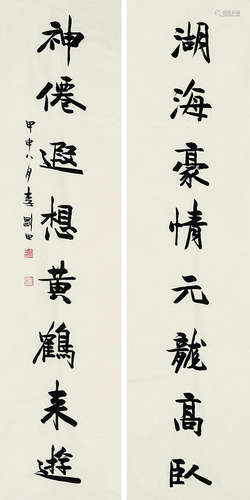 湖海豪情元龍高臥
神僊遐想黃鶴来遊
甲申八月李剛田